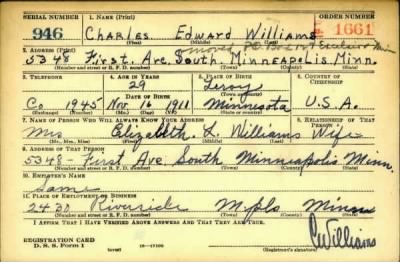 SERIAL NUMBER 1. NAME (Print) ORDER NUMBER
946 Charles Edward Williams 1661
(First) (Middle) (Last)
2. ADDRESS (Print) moved
5348 First. Ave, South. Minneapolis, Minn.
(Number and street or R. F. D. number) (Town) (County) (State)
3. TELEPHONE 4. AGE IN YEARS 5. PLACE OF BIRTH 6. COUNTRY OF CITIZENSHIP
29 Leroy
(Town or county)
Co 1945 Nov 16 1911 Minnesota U.S.A.
(Exchange) (Number) (Mo.) (Day) (Yr.) (State or country)
7. NAME OF PERSON WHO WILL ALWAYS KNOW YOUR ADDRESS 8. RELATIONSHIP OF THAT PERSON
Mrs Elizabeth L. Williams Wife
(Mr., Mrs., Miss) (First) (Middle) (Last)
9. ADDRESS OF THAT PERSON
5348 - First Ave South Minneapolis Minn.
(Number and street or R. F. D. number) (Town) (County) (State)
10. EMPLOYER'S NAME
Same
11. PLACE OF EMPLOYMENT OR BUSINESS
2430 Riverside Mpls Minn
(Number and street or R. F. D. number) (Town) (County) (State)
I AFFIRM THAT I HAVE VERIFIED ABOVE ANSWERS AND THAT THEY ARE TRUE.
REGISTRATION CARD
D. S. S. Form 1 (over) 16-17105 CWilliams
(Registrant's signature)